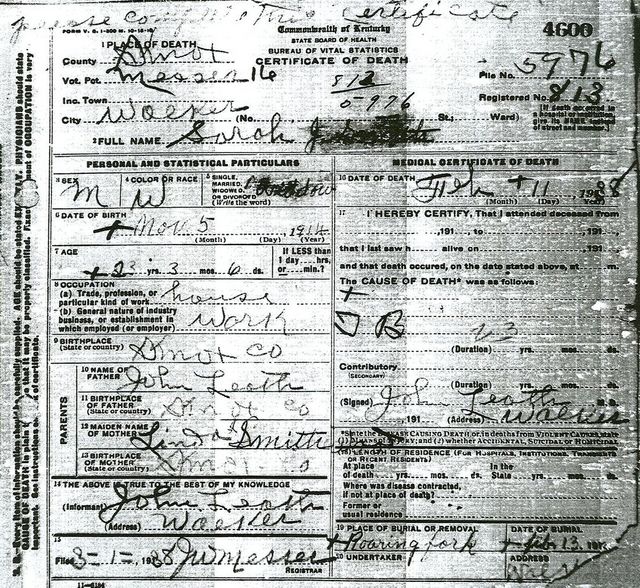 please complete This Certificate
FORM V. S. 1-
Commonwealth of Kentucky
4600
STATE BOARD OF HEALTH
BUREAU OF VITAL STATISTICS
CERTIFICATE OF DEATH
1 PLACE OF DEATH
County Knox
Vot. Pct. Messer 16
812
File No. 5976
Inc. Town
5976
Registered No. 813
City Walker (No. St.; Ward)
[If death occurred in a hospital or institution, give its NAME instead of street and number.]
2 FULL NAME Sarah J
PERSONAL AND STATISTICAL PARTICULARS
MEDICAL CERTIFICATE OF DEATH
3 SEX M
4 COLOR OR RACE W
5 SINGLE, MARRIED, WIDOWED OR DIVORCED (Write the word)
16 DATE OF DEATH Feb 11 1938
(Month) (Day) (Year)
6 DATE OF BIRTH Nov 5, 1914
(Month) (Day) (Year)
17 I HEREBY CERTIFY, That I attended deceased from
, 191 , to , 191
that I last saw h alive on , 191
and that death occured, on the date stated above, at m.
The CAUSE OF DEATH* was as follows:
7 AGE 23 yrs. 3 mos. 6 ds.
If LESS than 1 day hrs. or min.?
8 OCCUPATION
(a) Trade, profession, or particular kind of work house
(b) General nature of industry business, or establishment in which employed (or employer) Work
T B
(Duration) yrs. mos. ds.
9 BIRTHPLACE (State or country) Knox Co
Contributory (SECONDARY)
(Duration) yrs. mos. ds.
PARENTS
10 NAME OF FATHER John Leath
11 BIRTHPLACE OF FATHER (State or country) Knox Co
12 MAIDEN NAME OF MOTHER Linda Smith
13 BIRTHPLACE OF MOTHER (State or country) Knox Co
(Signed) John Leath
191 (Address) Walker
*State the DISEASE CAUSING DEATH or, in deaths from VIOLENT CAUSES, state (1) MEANS OF INJURY; and (2) whether ACCIDENTAL, SUICIDAL or HOMICIDAL
18 LENGTH OF RESIDENCE (FOR HOSPITALS, INSTITUTIONS, TRANSIENTS OR RECENT RESIDENTS)
At place of death yrs. mos. ds. In the State yrs. mos. ds.
Where was disease contracted, if not at place of death?
Former or usual residence
14 THE ABOVE IS TRUE TO THE BEST OF MY KNOWLEDGE
(Informant) John Leath
(Address) Walker
15
Filed 3-1-, 1938 JW Messer
REGISTRAR
19 PLACE OF BURIAL OR REMOVAL Roaring fork
DATE OF BURIAL Feb 13, 191
20 UNDERTAKER
ADDRESS
11-6184